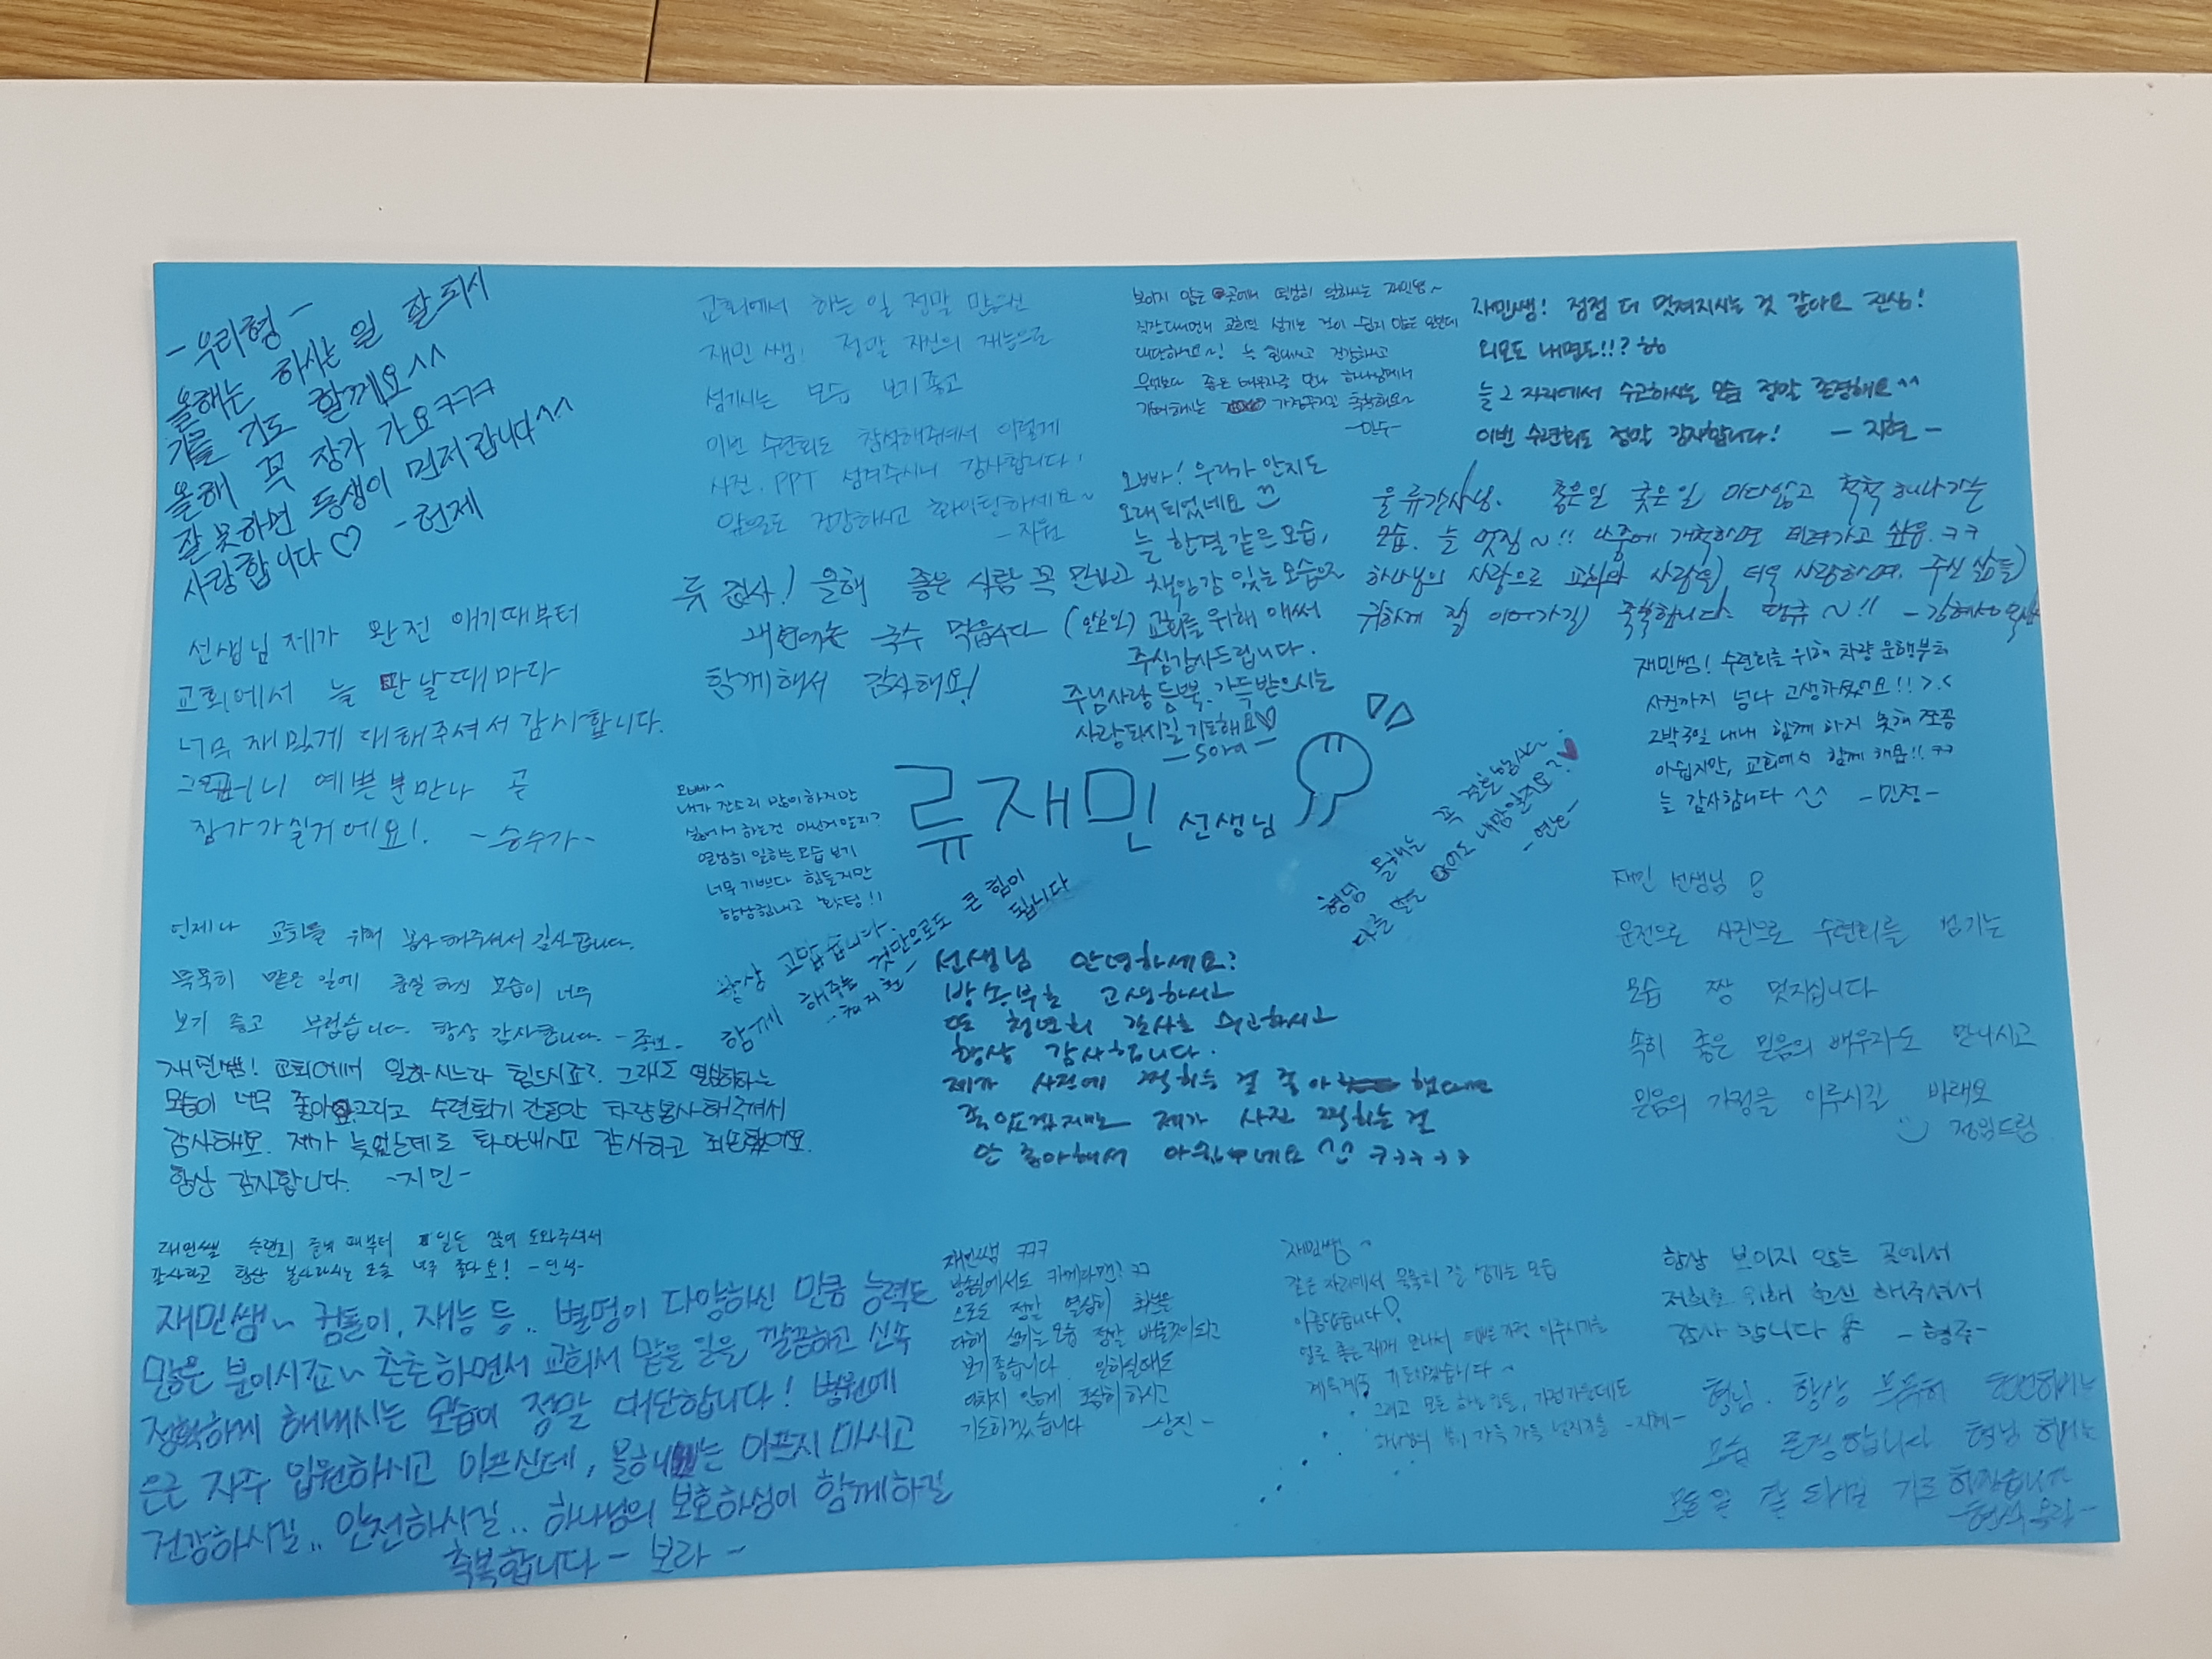 -우리형-
올해는 하시는 일 잘 되시
기를 기도 할께요^^
올해 꼭 장가 가요ㅋㅋㅋ
잘 못하면 동생이 먼저 갑니다^^
사랑합니다♡ -헌제
교회에서 하는 일 정말 많으신
재민쌤! 정말 자신의 재능으로
섬기시는 모습 보기 좋고
이번 수련회도 참석해주셔서 이렇게
사진, PPT 섬겨주시니 감사합니다!
앞으로도 건강하시고 화이팅하세요~
-지원
보이지 않는 곳에서 열심히 일하시는 재민쌤~
직장다니면서 교회일 섬기는 것이 쉽지 않은 일인데
대단하세요~! 늘 힘내시고 건강하시고
무엇보다 좋은 배우자를 만나 하나님께서
기뻐하시는 가정꾸리길 축복해요~
재민쌤! 점점 더 멋져지시는 것 같아요 진심!
외모도 내면도!!? ㅎㅎ
늘 그 자리에서 수고하시는 모습 정말 존경해요^^
이번 수련회도 정말 감사합니다! -지현-
오빠! 우리가 안지도
오래 되었네요
늘 한결같은 모습,
책임감 있는 모습으로
교회를 위해 애써
주심감사드립니다.
주님사랑 듬뿍, 가득받으시는
사랑되시길 기도해요♡
-Sora-
울 류간사님. 좋은일 궂은일 마다않고 척척 해나가는
모습. 늘 멋짐~!! 나중에 개척하면 데려가고 싶음.ㅋㅋ
하나님의 사랑으로 교회와 사람을 더욱 사랑하며, 주신 삶을
귀하게 잘 이어가길 축복합니다.
류 간사! 올해 좋은 사람 꼭 만나고
국수 먹읍시다
함께해서 감사해요!
선생님 제가 완전 애기때부터
교회에서 늘 만날때마다
너무 재밌게 대해주셔서 감사합니다.
예쁜분만나 곧
장가가실거에요!. -승수가-
재민쌤! 수련회를 위해 차량 운행부터
사진까지 넘나 고생하셨어요!! >.<
2박3일 내내 함께 하지 못해 쪼끔
아쉽지만, 교회에서 함께 해욤!! ㅋㅋ
늘 감사합니다 ^^ -민정-
오빠~
내가 잔소리 많이하지만
싫어서 하는건 아닌거알지?
열심히 일하는모습 보기
너무 기쁘다 힘들지만
항상힘내고 홧팅!!
류재민 선생님
형님 올해는 꼭 결혼하십시다.
다른 말은 없어도 내맘알죠?♥
-연호-
재민 선생님!
운전으로 사진으로 수련회를 섬기는
모습 짱 멋지십니다
속히 좋은 믿음의 배우자도 만나시고
믿음의 가정을 이루시길 바래요
정임드림
항상 고맙습니다.
함께 해주는 것만으로도 큰 힘이
됩니다
언제나 교회를 위해 봉사해주셔서 감사합니다.
묵묵히 맡은 일에 충실하신 모습이 너무
보기 좋고 부럽습니다. 항상 감사합니다.
선생님 안녕하세요?
방송부로 고생하시고
또 청년회 간사로 수고하시고
항상 감사합니다.
제가 사진에 찍히는 걸 좋아했다면
좋았겠지만 제가 사진 찍히는 걸
안 좋아해서 아쉽네요 ^^ ㅋㅋㅋㅋㅋ
재민쌤! 교회에서 일하시느라 힘드시죠? 그래도 열심히하는
모습이 너무 좋아요 그리고 수련회기간동안 차량봉사해주셔서
감사해요. 제가 늦었는데도 화안내시고 감사하고 죄송했어요.
항상 감사합니다. -지민-
재민쌤 수련회 준비 때부터 일도 많이 도와주셔서
감사하고 항상 봉사하시는 모습 너무 좋아요! -민석-
재민쌤~ 컴돌이, 재능 등.. 별명이 다양하신 만큼 능력도
많은 분이시죠~ 촌촌하면서 교회서 맡은 일을 깔끔하고 신속
정확하게 해내시는 모습이 정말 대단합니다! 병원에
은근 자주 입원하시고 아프신데, 올해는 아프지 마시고
건강하시길.. 안전하시길.. 하나님의 보호하심이 함께하길
축복합니다 -보라-
재민쌤 ㅋㅋㅋ
방송실에서도 카메라맨? ㅋㅋ
으로도 정말 열심히 최선을
다해 섬기는모습 정말 바람직이되고
보기좋습니다. 일하실때도
다치지 않게 조심히하시고
기도하겠습니다 -상진-
재민쌤~
같은 자리에서 묵묵히 잘 섬기는 모습
아름답습니다♡
계속계속 기도하겠습니다~
항상 보이지 않는 곳에서
저희를 위해 헌신 해주셔서
감사합니다 -형주-
형님. 항상 묵묵히 헌신하시는
모습 존경합니다 형님 하시는
모든 일 잘 되시길 기도하겠습니다